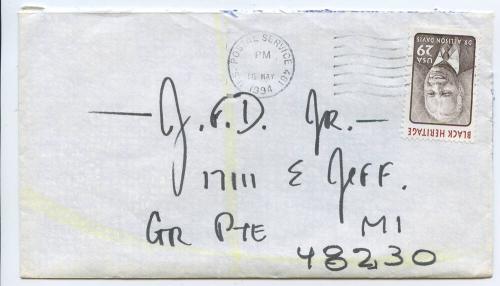 POSTAL SERVICE 481
PM
16 MAY
1994
BLACK HERITAGE
DR. ALLISON DAVIS
USA
29
J.F.D. JR.
17111 E JEFF.
GR PTE MI
48230